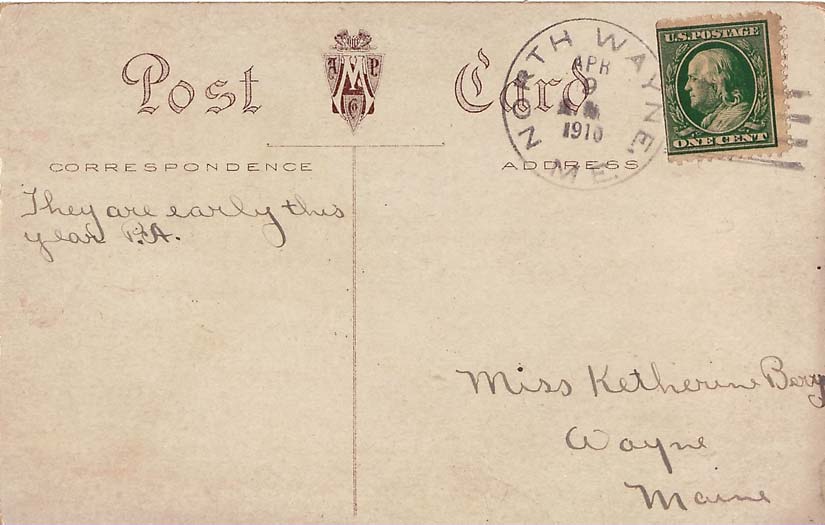 Post Card
A M P Co
NORTH WAYNE, ME.
APR
9
1910
U.S. POSTAGE
ONE CENT
CORRESPONDENCE
ADDRESS
They are early this
year P.A.
Miss Ketherine Berry
Wayne
Maine